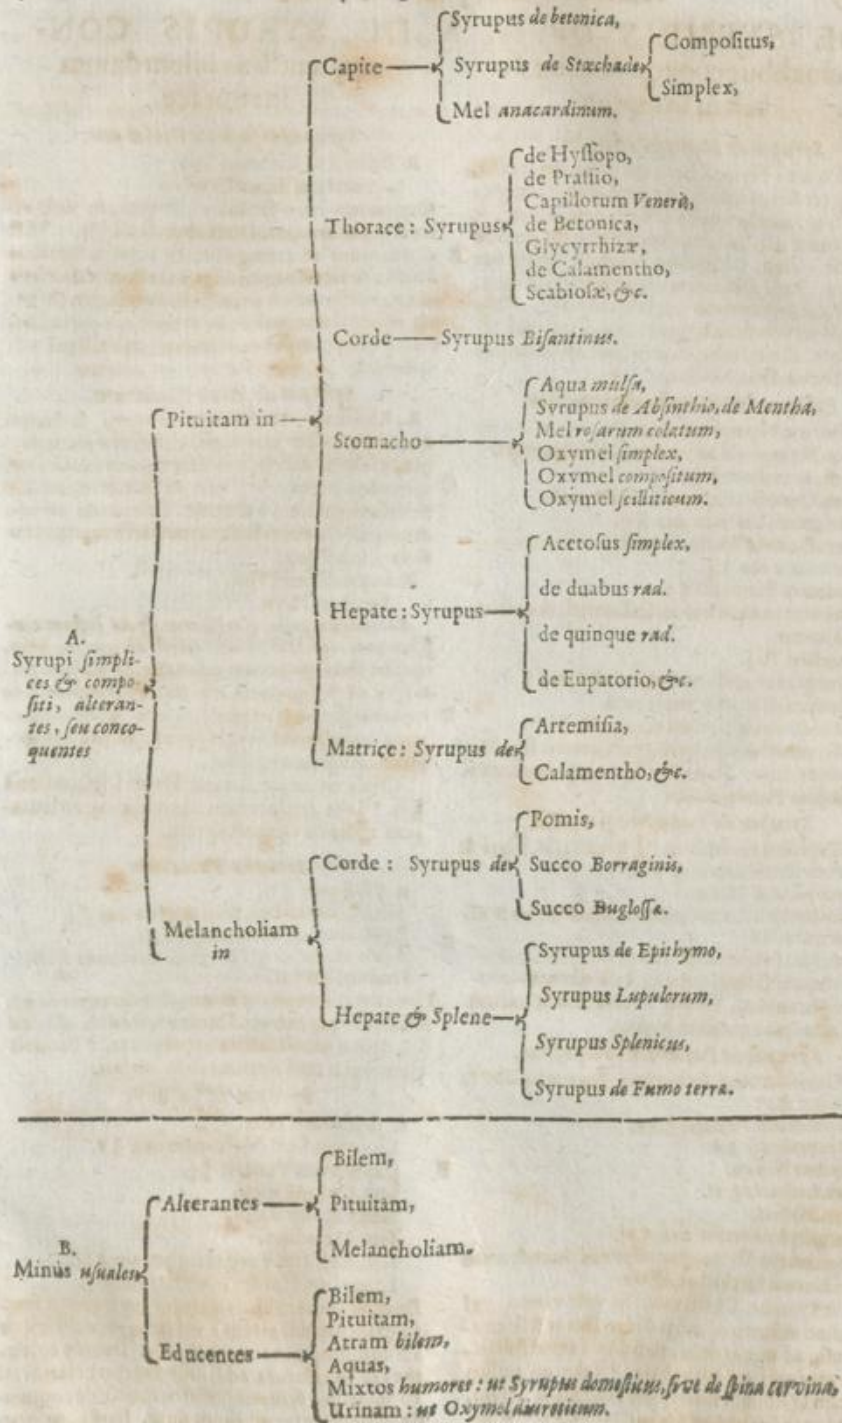 Syrupus de betonica,
Capite
Syrupus de Stæchade
Compositus,
Simplex,
Mel anacardinum.
Thorace: Syrupus
de Hyssopo,
de Prassio,
Capillorum Veneris,
de Betonica,
Glycyrrhizæ,
de Calamentho,
Scabiosæ, &c.
Corde — Syrupus Bisantinus.
Pituitam in
Stomacho
Aqua mulsa,
Syrupus de Absinthio, de Mentha,
Mel rosarum colatum,
Oxymel simplex,
Oxymel compositum,
Oxymel scilliticum.
Hepate: Syrupus
Acetosus simplex,
de duabus rad.
de quinque rad.
de Eupatorio, &c.
A.
Syrupi simpli-
ces & compo-
siti, alteran-
tes, seu conco-
quentes
Matrice: Syrupus de
Artemisia,
Calamentho, &c.
Melancholiam
in
Corde: Syrupus de
Pomis,
Succo Borraginis,
Succo Buglossa.
Hepate & Splene
Syrupus de Epithymo,
Syrupus Lupulorum,
Syrupus Splenicus,
Syrupus de Fumo terra.
B.
Minùs usuales
Alterantes
Bilem,
Pituitam,
Melancholiam.
Educentes
Bilem,
Pituitam,
Atram bilem,
Aquas,
Mixtos humores: ut Syrupus domesticus, sive de spina cervina,
Urinam: ut Oxymel diureticum.